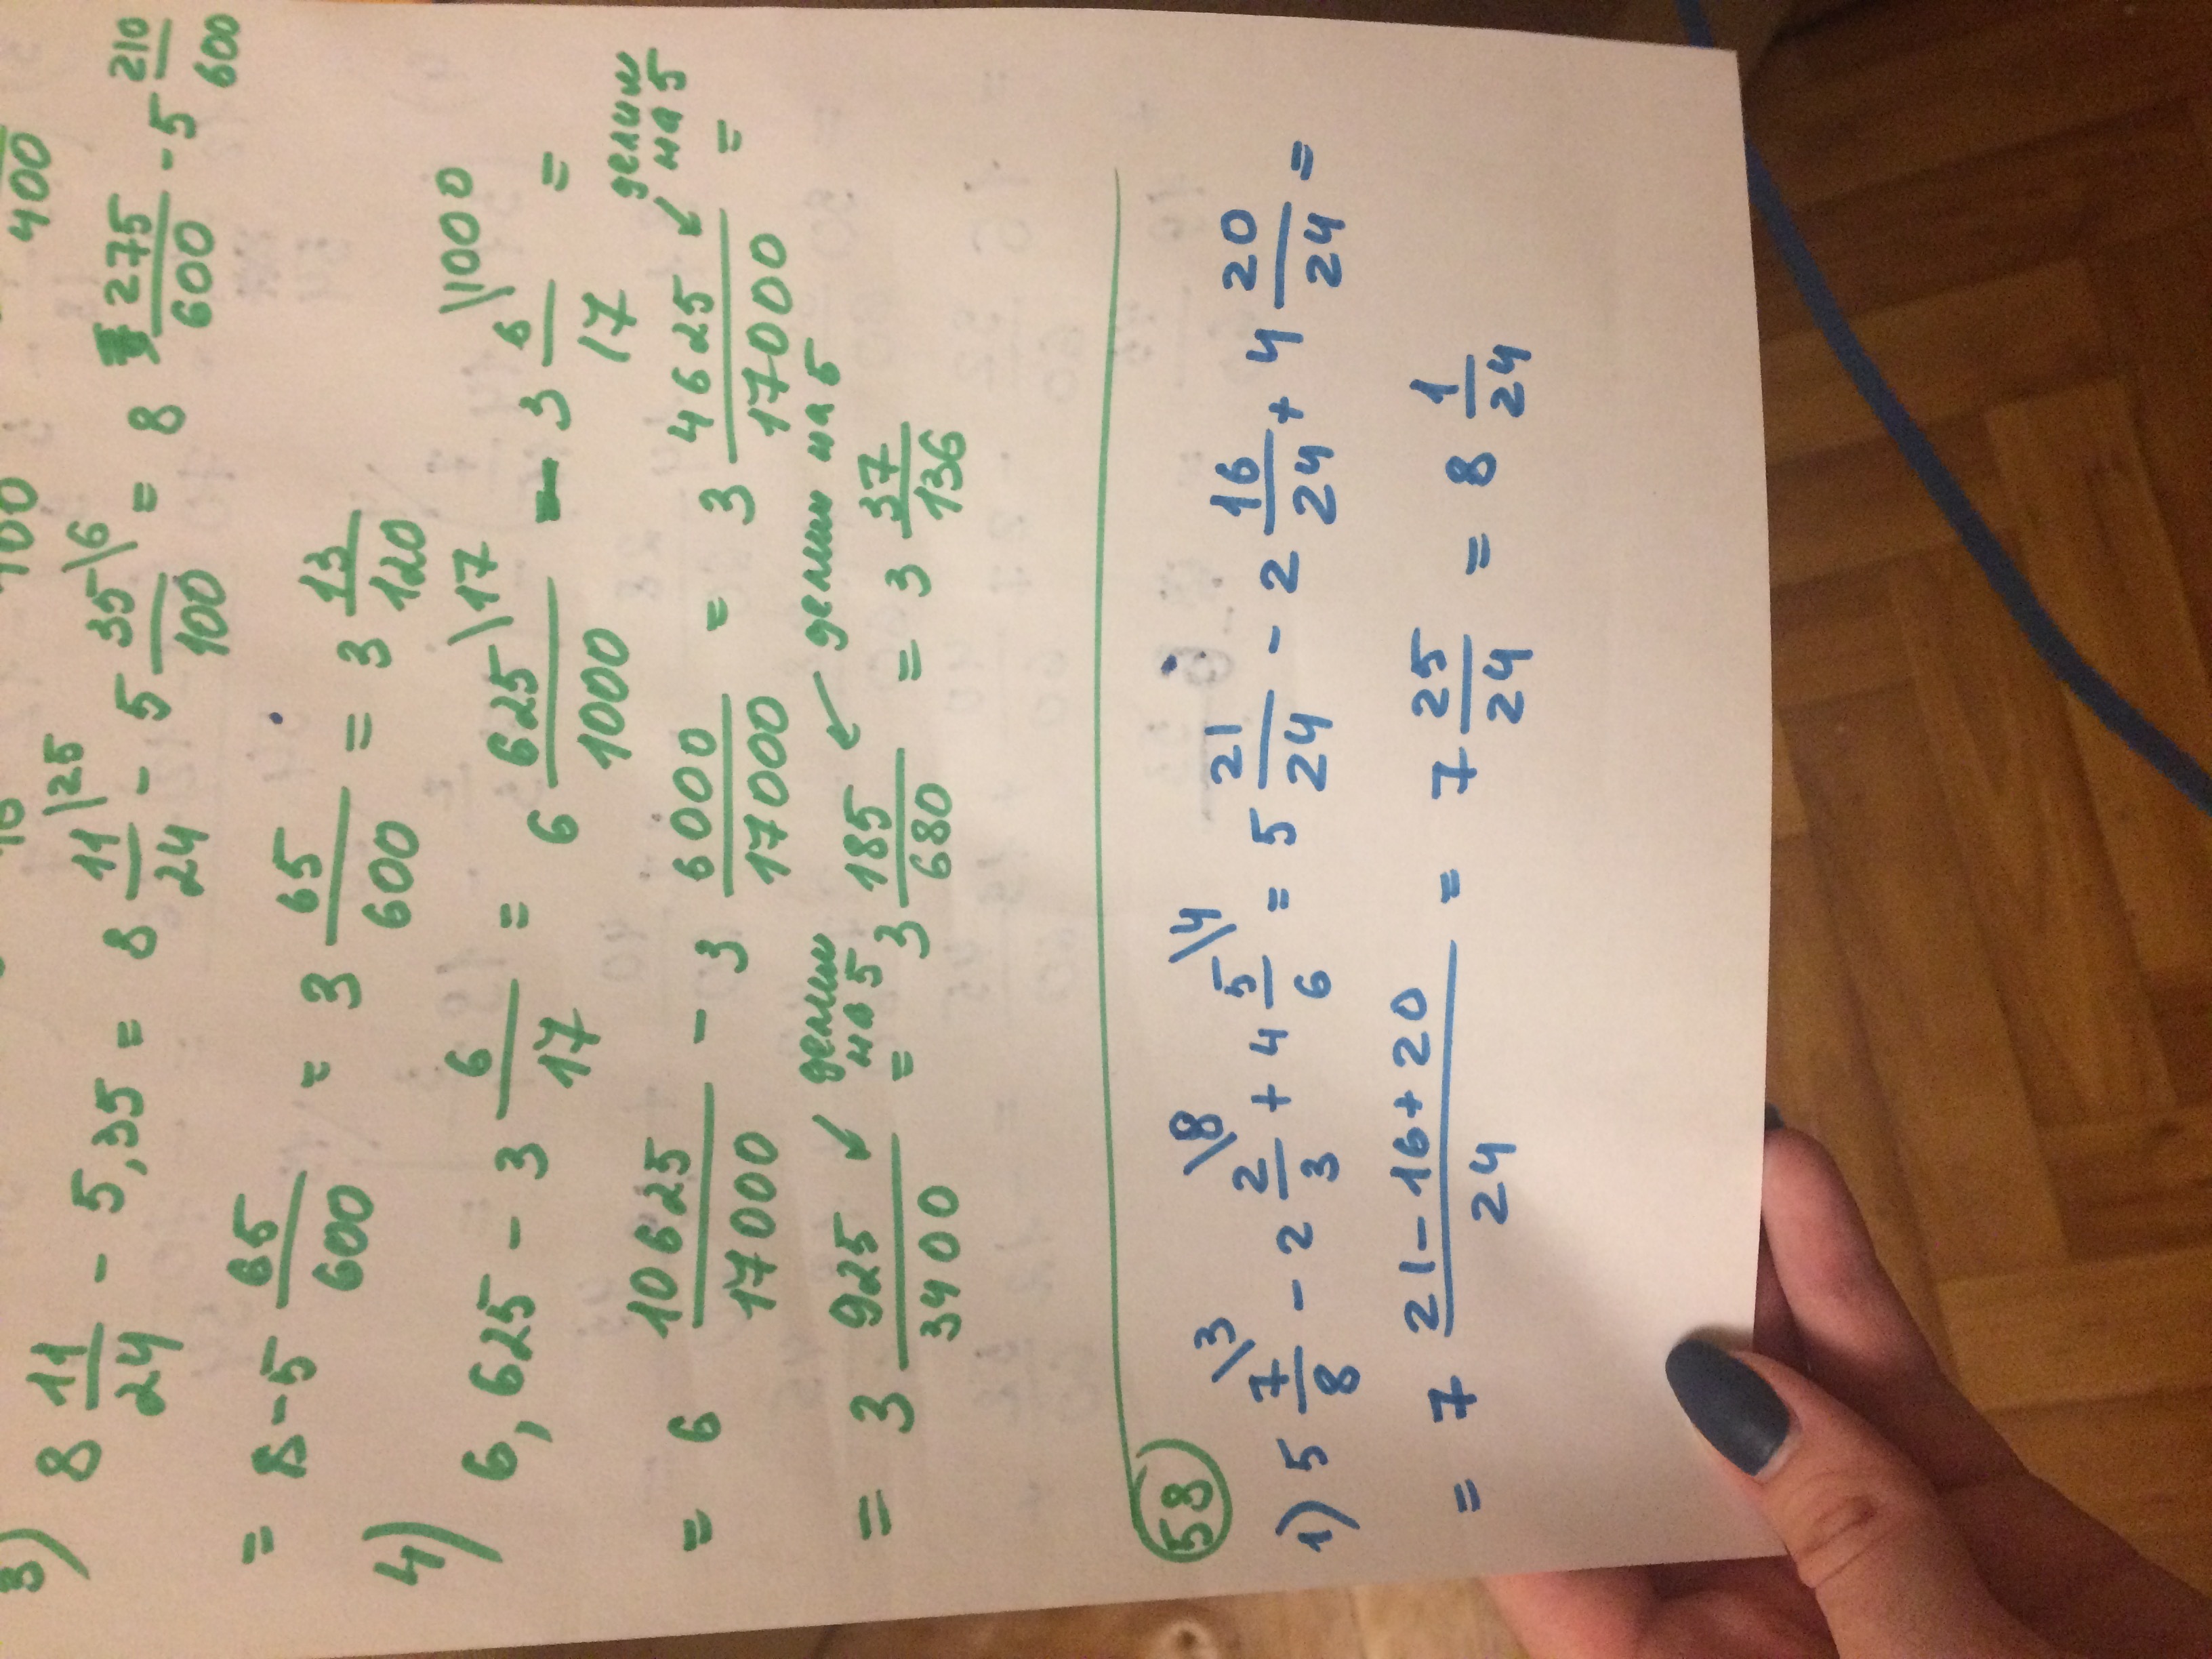 400 400
3) 8 11/24 - 5,35 = 8 11/24 \25 - 5 35/100 \6 = 8 275/600 - 5 210/600
= 8-5 65/600 = 3 65/600 = 3 13/120
4) 6,625 - 3 6/17 = 6 625/1000 \17 - 3 6/17 \1000 =
= 6 10625/17000 - 3 6000/17000 = 3 4625/17000 ↙ делим на 5 =
= 3 925/3400 ↙ делим на 5 = 3 185/680 ↙ делим на 5 = 3 37/136
58
1) 5 7/8 \3 - 2 2/3 \8 + 4 5/6 \4 = 5 21/24 - 2 16/24 + 4 20/24 =
= 7 21-16+20/24 = 7 25/24 = 8 1/24